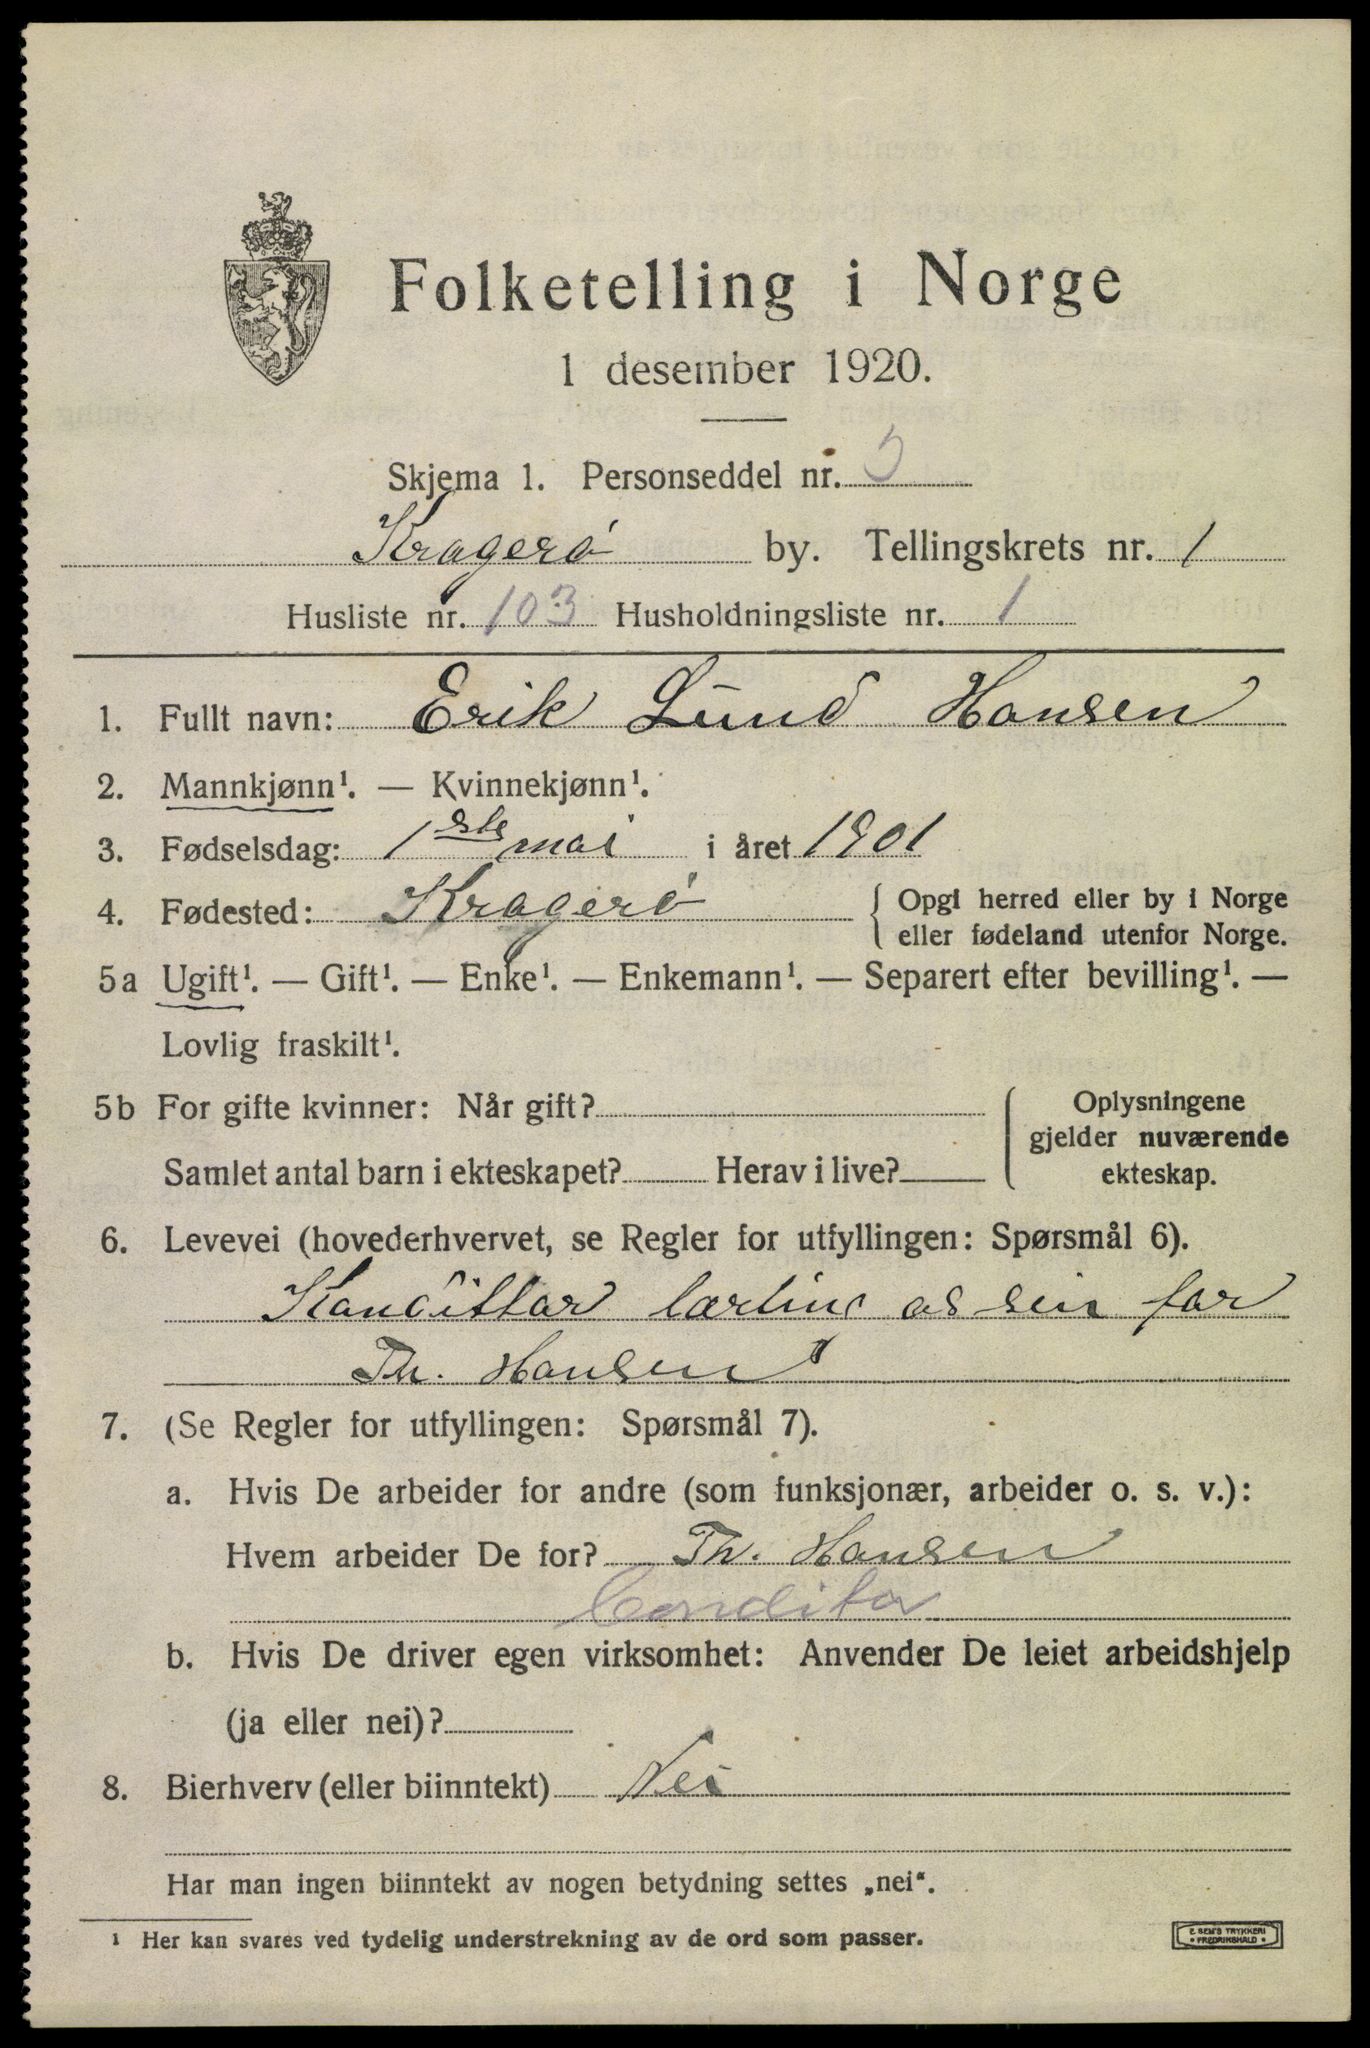 Folketelling i Norge
1 desember 1920.
Skjema 1. Personseddel nr. 5
Kragerö by. Tellingskrets nr. 1
Husliste nr. 103 Husholdningsliste nr. 1
1. Fullt navn: Erik Lund Hansen
2. Mannkjønn¹. — Kvinnekjønn¹.
3. Fødselsdag: 1ste mai i året 1901
4. Fødested: Kragerö { Opgi herred eller by i Norge
eller fødeland utenfor Norge.
5a Ugift¹. — Gift¹. — Enke¹. — Enkemann¹. — Separert efter bevilling¹. —
Lovlig fraskilt¹.
5b For gifte kvinner: Når gift?
Samlet antal barn i ekteskapet? Herav i live?
Oplysningene
gjelder nuværende
ekteskap.
6. Levevei (hovederhvervet, se Regler for utfyllingen: Spørsmål 6).
Kondittor lærling os sin far
Th. Hansen
7. (Se Regler for utfyllingen: Spørsmål 7).
a. Hvis De arbeider for andre (som funksjonær, arbeider o. s. v.):
Hvem arbeider De for? Th. Hansen
Conditor
b. Hvis De driver egen virksomhet: Anvender De leiet arbeidshjelp
(ja eller nei)?
8. Bierhverv (eller biinntekt) Nei
Har man ingen biinntekt av nogen betydning settes „nei“.
¹ Her kan svares ved tydelig understrekning av de ord som passer.
E. SEM'S TRYKKERI
• FREDRIKSHALD •